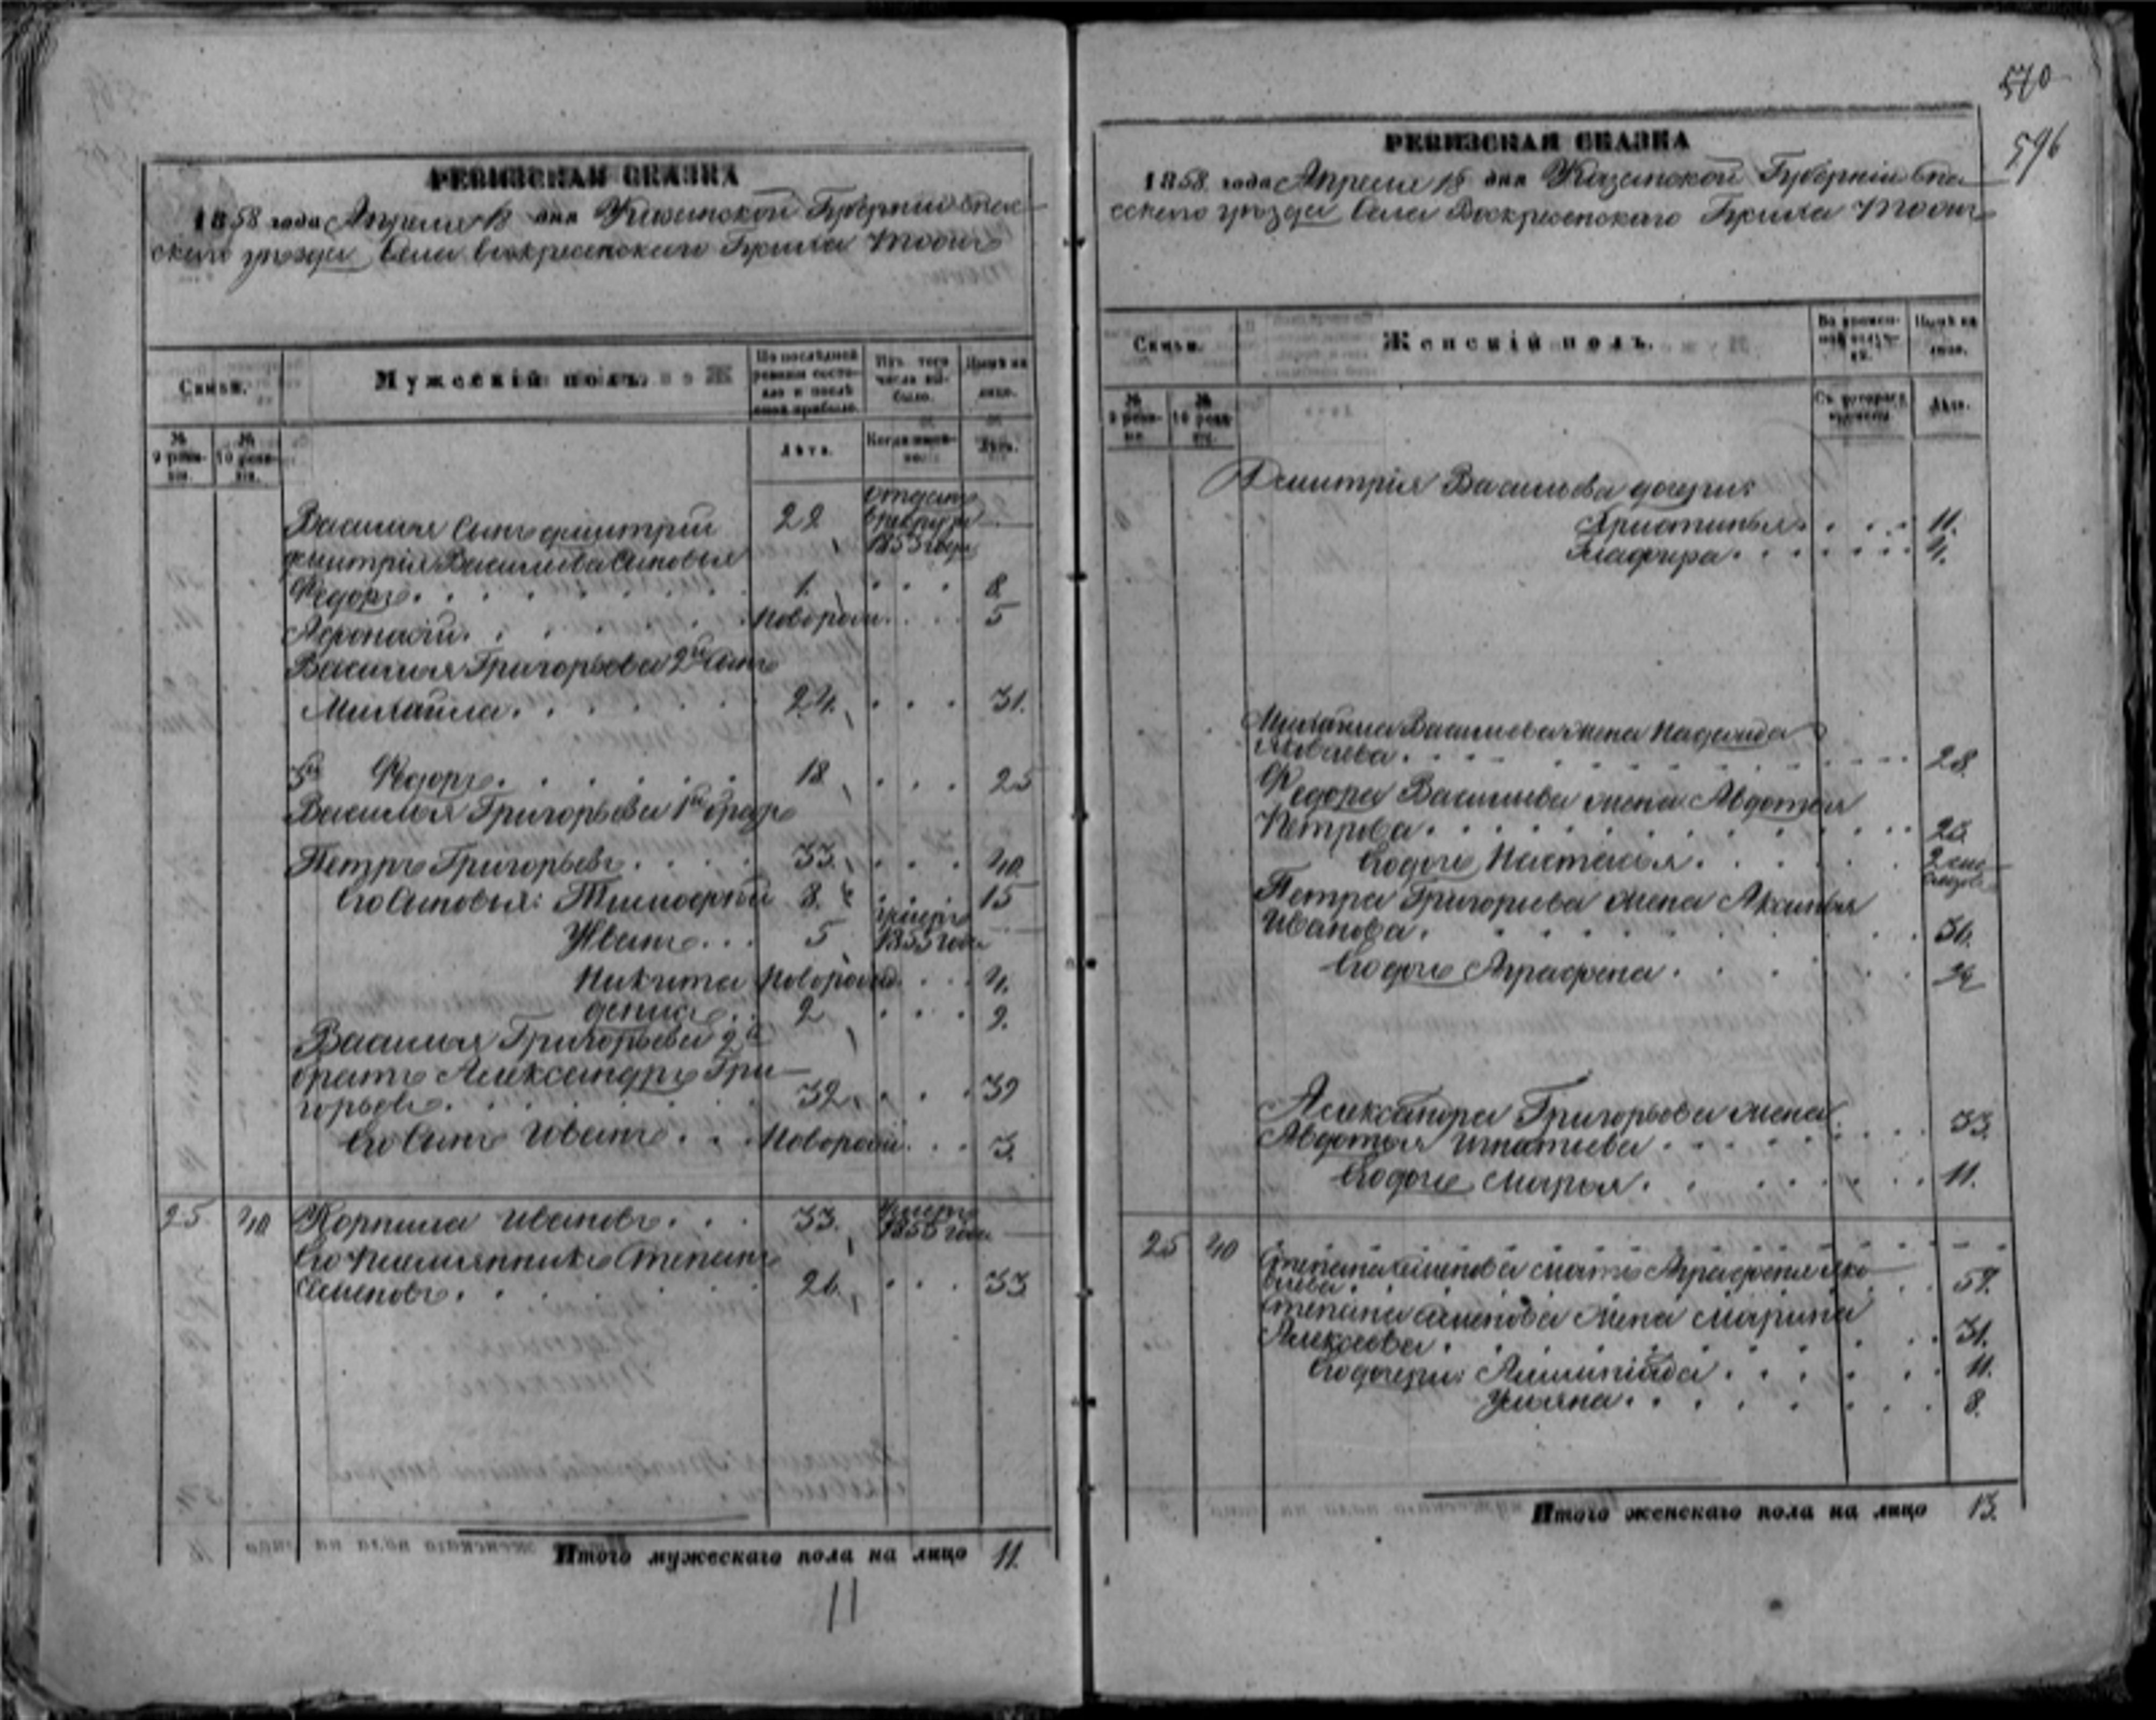 РЕВИЗСКАЯ СКАЗКА
1858 года Апреля 18 дня Казанской Губернии Спас-
скаго уезда Села Воскресенскаго Гусиха тожъ
Семьи.
Мужескій полъ.
По послѣдней ревизіи состояло и послѣ оной прибыло.
Изъ того числа выбыло.
Нынѣ на лицо.
№ 9 ревизіи.
№ 10 ревизіи.
Лѣта.
Когда именно.
Лѣта.
Василья Сынъ дмитрий 22 отданъ в рекруты 1853 года
дмитрия Васильева Сыновья
Федоръ 1 8
Афонасий новорожд. 5
Василья Григорьева 2й Сынъ
Михайла 24 31
3й Федоръ 18 25
Василья Григорьева 1й братъ
Петръ Григорьевъ 33 40
Его Сыновья: Тимофей 8 15
Иванъ 5 умеръ 1855 года
Никита новорожд. 4
дениса 2 9
Василья Григорьева 2й
братъ Александръ Гри-
горьевъ 32 39
Его Сынъ Иванъ новорожд. 3
25 40 Корнила Ивановъ 33 умеръ 1855 года
Его племянникъ Степанъ
Семеновъ 26 33
Итого мужескаго пола на лицо 11.
11
570
596
РЕВИЗСКАЯ СКАЗКА
1858 года Апреля 18 дня Казанской Губернии Спа-
сскаго уезда Села Воскресенскаго Гусиха тожъ
Семьи.
Женскій полъ.
Во временной отлучкѣ.
Нынѣ на лицо.
№ 9 ревизіи.
№ 10 ревизіи.
Съ котораго времени.
Лѣта.
Дмитрия Васильева дочери:
Христинья 11.
Глафира 4.
Михайла Васильева жена Надежда
Яковлева 28.
Федора Васильева жена Авдотья
Петрова 25
Его дочь Настасья 2 месяцовъ
Петра Григорьева жена Аксинья
Иванова
Его дочь Аграфена
Александра Григорьева жена
Авдотья Игнатьева 33.
Его дочь Марья 11.
25 40
Степана Семенова мать Аграфена Яко-
влева 59.
Степана Семенова жена Марина
Алексеева 31.
Его дочери: Алимпиада 11.
Ульяна 8.
Итого женскаго пола на лицо 13.